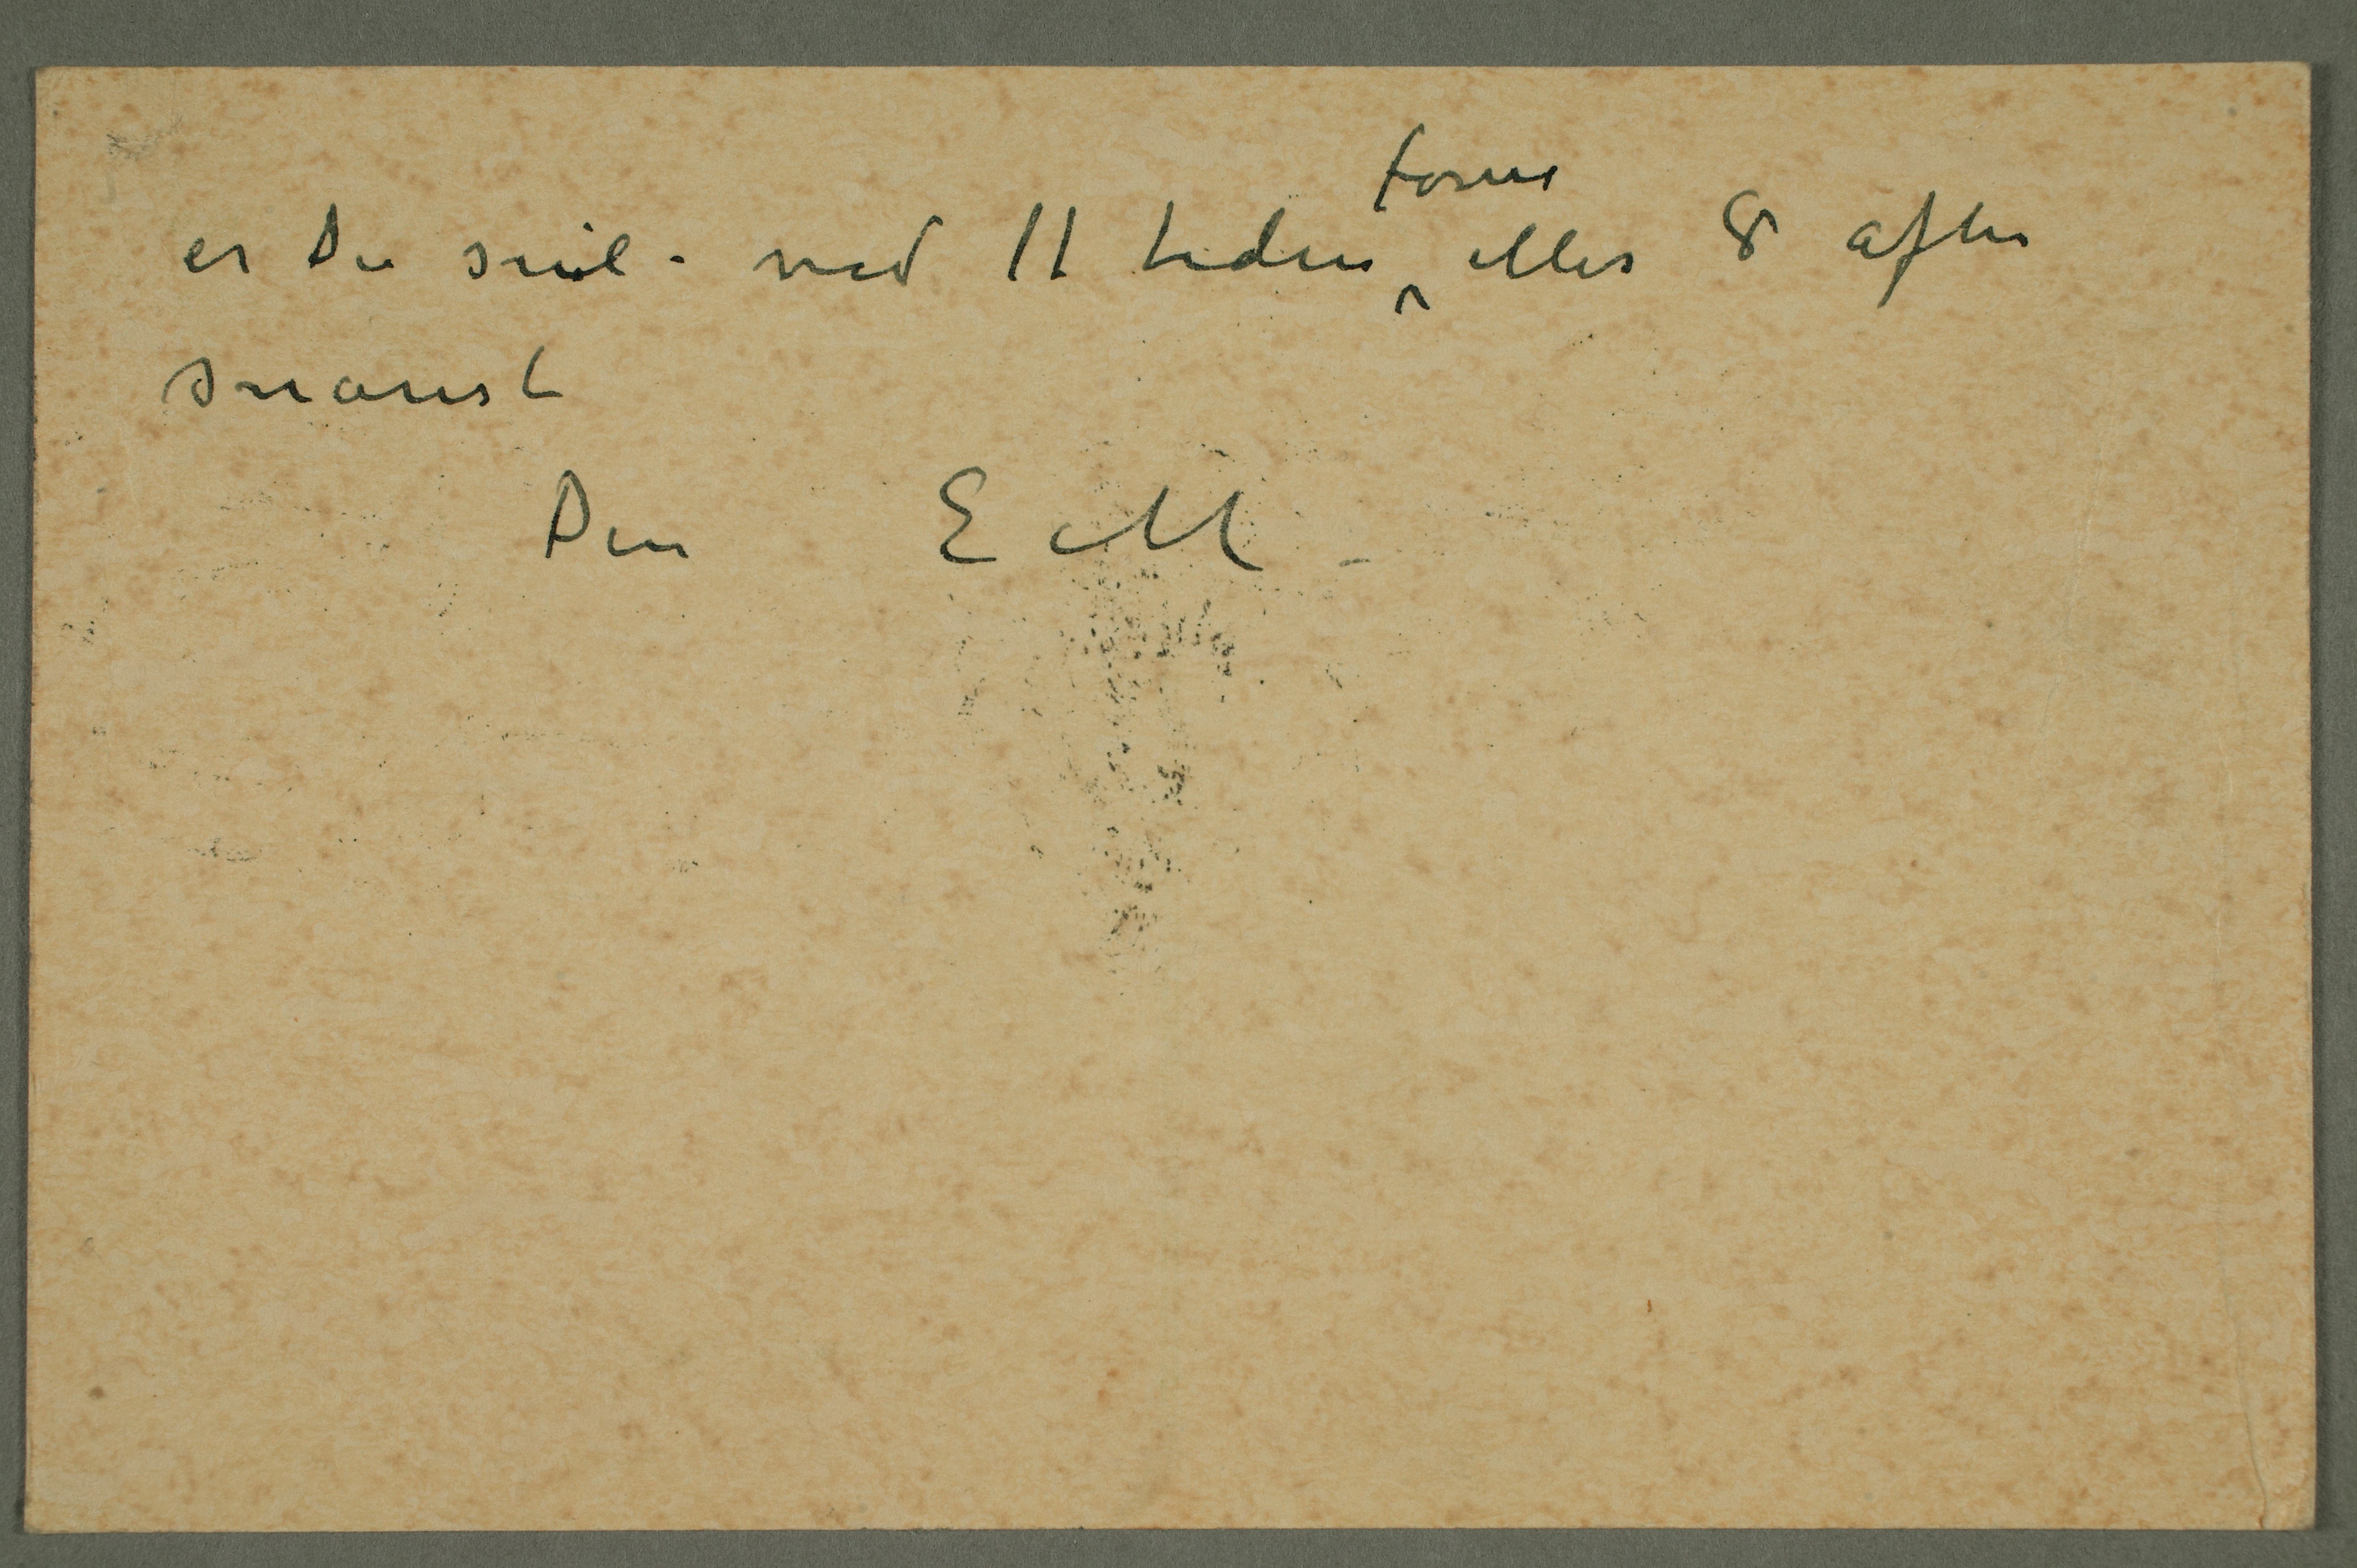 er Du snil – ved 11 tiden form eller 8 aften
snarest
Din E M –